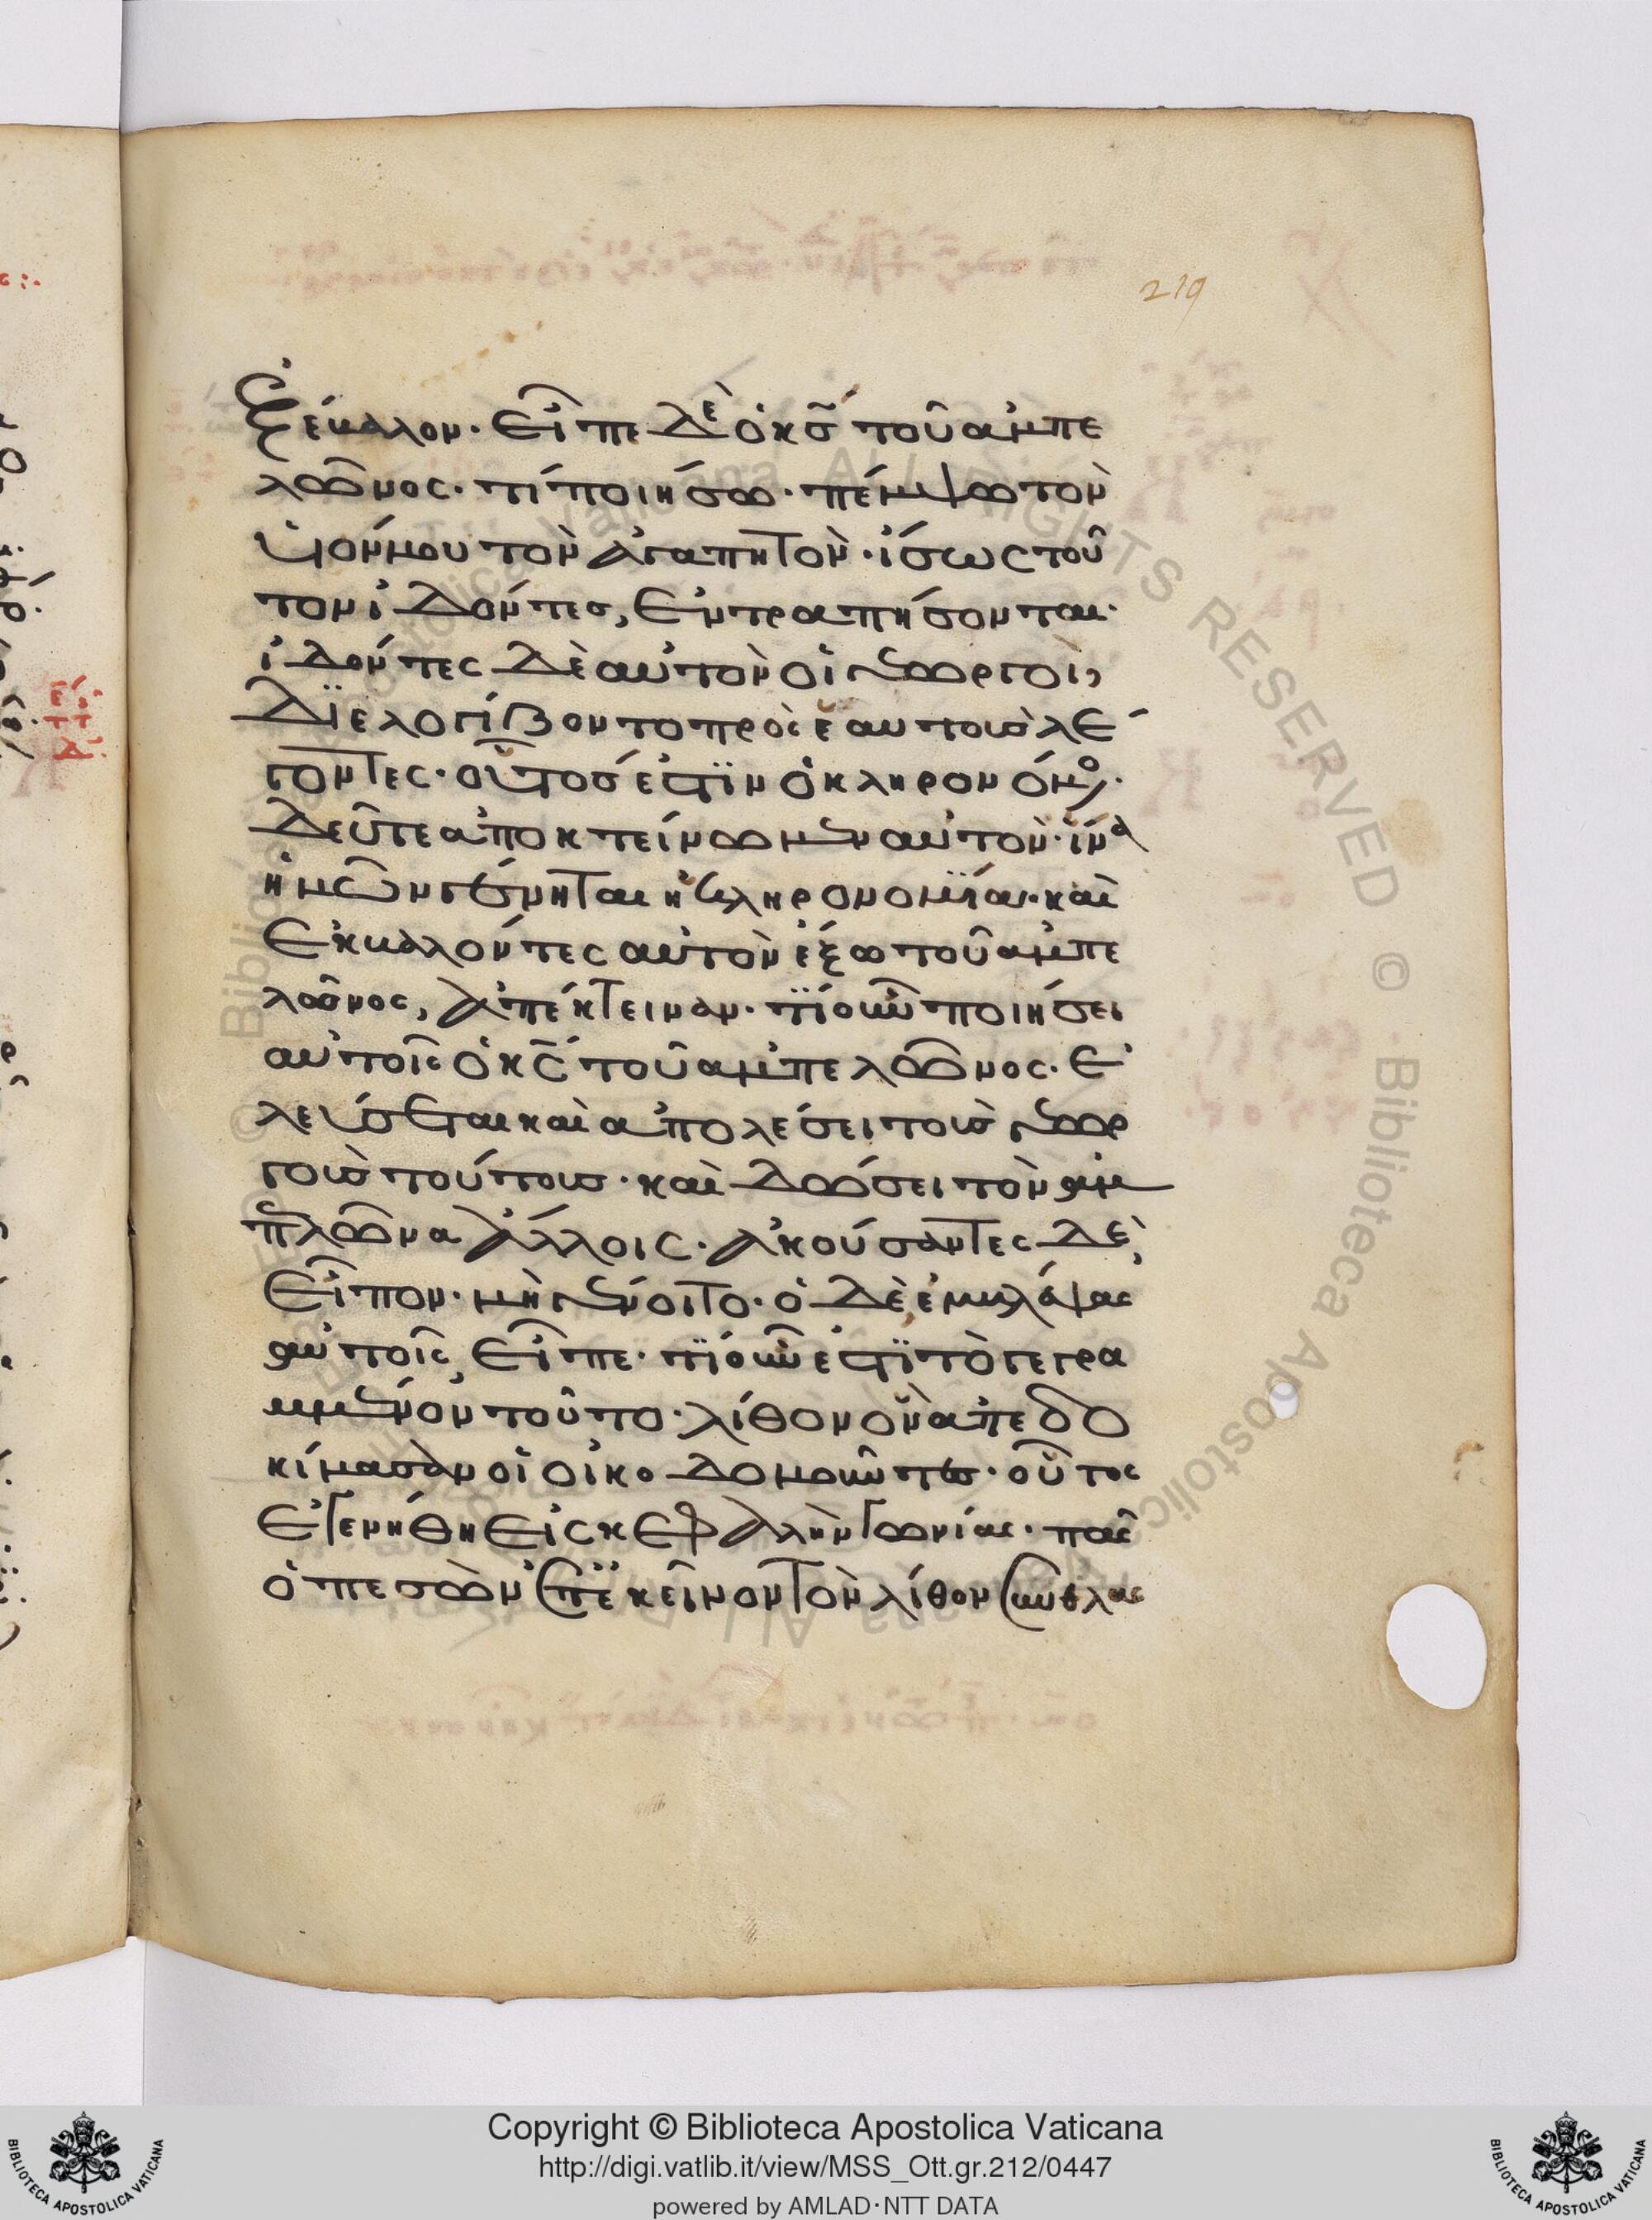 219
ξέβαλον. εἶπε δὲ ὁ κς τοῦ ἀμπε
λῶνος. τί ποιήσω. πέμψω τὸν
υἱόν μου τὸν ἀγαπητὸν. ἴσως τοῦ
τον ἰδόντες, ἐντραπήσονται.
ἰδόντες δὲ αὐτὸν οἱ γεωργοὶ,
διελογίζοντο πρὸς ἑαυτοὺς λέ
γοντες. οὗτός ἐστιν ὁ κληρονόμο.
δεῦτε ἀποκτείνωμεν αὐτὸν. ἵνα
ἡμῶν γένηται ἡ κληρονομία. καὶ
ἐκβαλόντες αὐτὸν ἔξω τοῦ ἀμπε
λῶνος, ἀπέκτειναν. τί οὖν ποιήσει
αὐτοῖς ὁ κς τοῦ ἀμπελῶνος. ἐ
λεύσεται καὶ ἀπολέσει τοὺς γεωρ
γοὺς τούτους. καὶ δώσει τὸν ἀμ
πελῶνα ἄλλοις. ἀκούσαντες δὲ,
εἶπον. μὴ γένοιτο. ὁ δὲ ἐμβλέψας
αὐτοῖς, εἶπε. τί οὖν ἐστὶ τὸ γεγρα
μμένον τοῦτο. λίθον ὃν ἀπεδο
κίμασαν οἱ οἰκοδομοῦντες. οὗτος
ἐγενήθη εἰς κεφαλὴν γωνίας. πᾶς
ὁ πεσὼν ἐπ ἐκεῖνον τὸν λίθον συνθλας
Copyright © Biblioteca Apostolica Vaticana
http://digi.vatlib.it/view/MSS_Ott.gr.212/0447
powered by AMLAD·NTT DATA